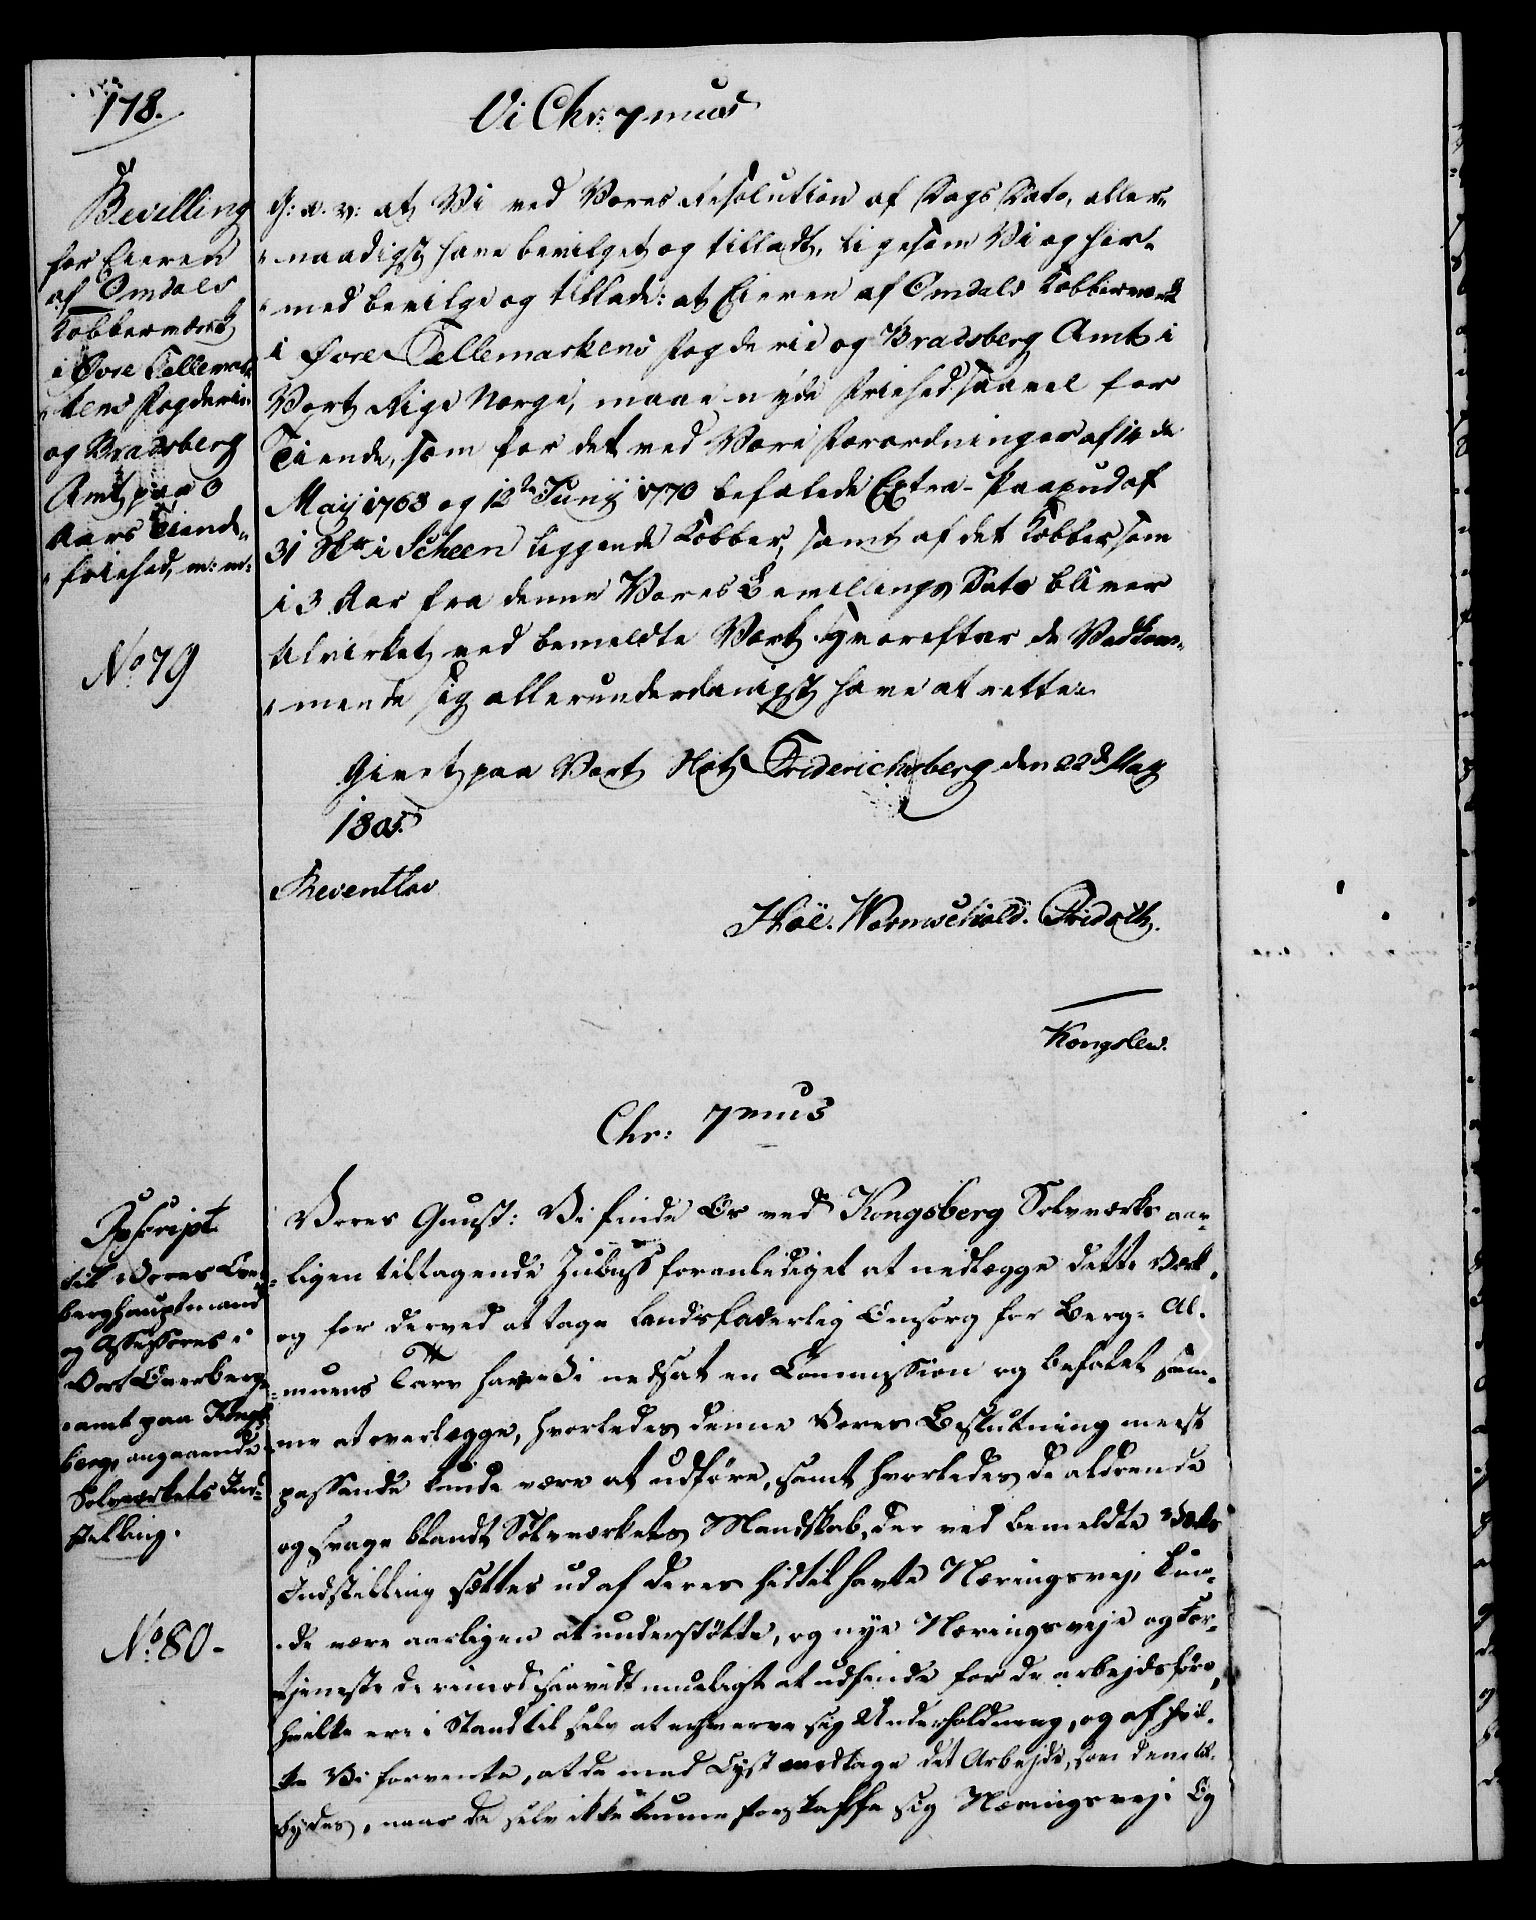 178.
Vi Chr: 7mus
Bevilling
for Eieren
af Omdals
Kobberværk
i Øvre Tellemar-
kens Fogderie
og Bradsberg
Amt paa 3
Aars Tiende-
friehed, m: m:
No 79
G: A. V: at Vi ved Vores Resolution af Dags Dato, aller-
naadigst have bevilget og tilladt, ligesom Vi og her-
med bevilge og tillade: at Eieren af Omdals Kobberværk
i Øvre Tellemarkens Fogderie og Bradsberg Amt i
Vort Rige Norge, maae nyde Friehed saavel for
Tiende, som for det ved Vore Forordninger af 14de
Maij 1768 og 12te Junij 1770 befalede Extra-Paabud af
31 Sk℔ i Scheen liggende Kobber, samt af det Kobber som
i 3 Aar fra denne Vores Bevillings Dato bliver
tilvirket ved bemeldte Værk. Hvorefter de Vedkom-
mende sig allerunderdanigst have at rette.
Givet paa Vort Slot Friderichsberg den 22d May
1805.
Reventlov
Hoë. Wormschiold. Fridsch.
Kongslew.
Chr: 7mus
Rescript
til Vores Over-
berghauptmand
og Assessores i
Vort Overberg-
amt paa Kongs-
berg, angaaende
Sølvværkets Ind-
stilling.
No 80-
Vores Gunst: Vi finde Os ved Kongsberg Sølvværks aar-
ligen tiltagende Zubuss foranlediget at nedlægge dette Værk,
og for derved at tage landsfaderlig Omsorg for Berg-Al-
muens Tarv have Vi nedsat en Commission og befalet sam-
me at overlægge, hvorledes denne Vores Beslutning meest
passende kunde være at udføre, samt hvorledes de aldrende
og svage blandt Sølvværkets Mandskab, der ved bemeldte Værks
Indstilling sættes ud af deres hidtil havte Næringsvej, kun-
de være aarligen at understøtte, og nye Næringsveje og For-
tjeneste derimod saavidt mueligt at udfinde for de arbejdsføre,
hvilke ere i Stand til selv at erhverve sig Underholdning, og af hvil-
ke Vi forvente, at de med Lyst modtage det Arbejde, som dem til-
bydes, naar de selv ikke kunne forskaffe sig Næringsvej. Og